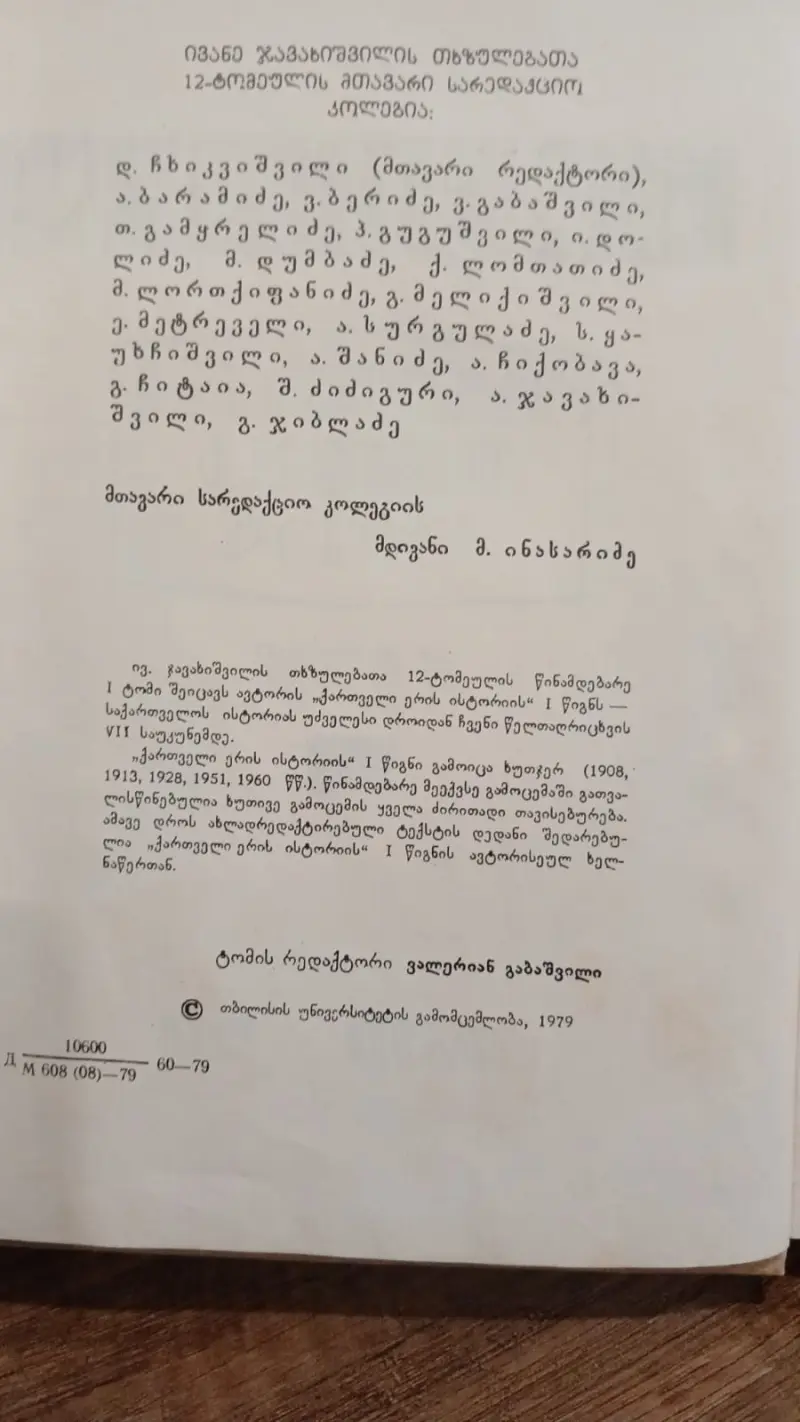 ივანე ჯავახიშვილის თხზულებათა
12-ტომეულის მთავარი სარედაქციო
კოლეგია:
დ. ჩხიკვიშვილი (მთავარი რედაქტორი),
ა. ბარამიძე, ვ. ბერიძე, ვ. გაბაშვილი,
თ. გამყრელიძე, პ. გუგუშვილი, ი. დო-
ლიძე, მ. დუმბაძე, ქ. ლომთათიძე,
მ. ლორთქიფანიძე, გ. მელიქიშვილი,
ე. მეტრეველი, ა. სურგულაძე, ს. ყა-
უხჩიშვილი, ა. შანიძე, ა. ჩიქობავა,
გ. ჩიტაია, შ. ძიძიგური, ა. ჯავახი-
შვილი, გ. ჯიბლაძე
მთავარი სარედაქციო კოლეგიის
მდივანი მ. ინასარიძე
ივ. ჯავახიშვილის თხზულებათა 12-ტომეულის წინამდებარე
I ტომი შეიცავს ავტორის „ქართველი ერის ისტორიის“ I წიგნს —
საქართველოს ისტორიას უძველესი დროიდან ჩვენი წელთაღრიცხვის
VII საუკუნემდე.
„ქართველი ერის ისტორიის“ I წიგნი გამოიცა ხუთჯერ (1908,
1913, 1928, 1951, 1960 წწ.). წინამდებარე მეექვსე გამოცემაში გათვა-
ლისწინებულია ხუთივე გამოცემის ყველა ძირითადი თავისებურება.
ამავე დროს ახლადრედაქტირებული ტექსტის დედანი შედარებუ-
ლია „ქართველი ერის ისტორიის“ I წიგნის ავტორისეულ ხელ-
ნაწერთან.
ტომის რედაქტორი ვალერიან გაბაშვილი
© თბილისის უნივერსიტეტის გამომცემლობა, 1979
10600
Д 60—79
М 608 (08)—79